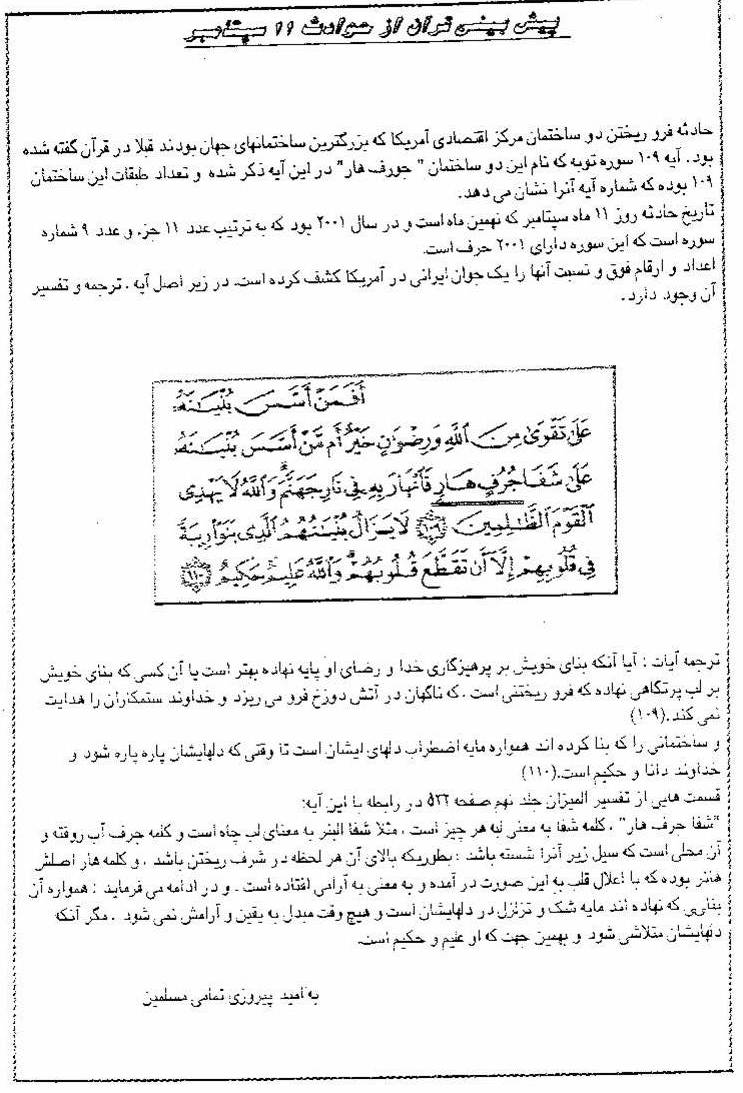 پیش بینی قرآن از حوادث ۱۱ سپتامبر
حادثه فرو ریختن دو ساختمان مرکز اقتصادی آمریکا که بزرگترین ساختمانهای جهان بودند قبلا در قرآن گفته شده
بود. آیه ۱۰۹ سوره توبه که نام این دو ساختمان " جورف هار" در این آیه ذکر شده و تعداد طبقات این ساختمان
۱۰۹ بوده که شماره آیه آنرا نشان می دهد.
تاریخ حادثه روز ۱۱ ماه سپتامبر که نهمین ماه است و در سال ۲۰۰۱ بود که به ترتیب عدد ۱۱ جزء و عدد ۹ شماره
سوره است که این سوره دارای ۲۰۰۱ حرف است.
اعداد و ارقام فوق و نسبت آنها را یک جوان ایرانی در آمریکا کشف کرده است. در زیر اصل آیه ، ترجمه و تفسیر
آن وجود دارد.
أَفَمَنْ أَسَّسَ بُنْيَـٰنَهُۥ
عَلَىٰ تَقْوَىٰ مِنَ ٱللَّهِ وَرِضْوَٰنٍ خَيْرٌ أَم مَّنْ أَسَّسَ بُنْيَـٰنَهُۥ
عَلَىٰ شَفَا جُرُفٍ هَارٍ فَٱنْهَارَ بِهِۦ فِى نَارِ جَهَنَّمَ ۗ وَٱللَّهُ لَا يَهْدِى
ٱلْقَوْمَ ٱلظَّـٰلِمِينَ ١٠٩ لَا يَزَالُ بُنْيَـٰنُهُمُ ٱلَّذِى بَنَوْا۟ رِيبَةً
فِى قُلُوبِهِمْ إِلَّآ أَن تَقَطَّعَ قُلُوبُهُمْ ۗ وَٱللَّهُ عَلِيمٌ حَكِيمٌ ١١٠
ترجمه آیات : آیا آنکه بنای خویش بر پرهیزگاری خدا و رضای او پایه نهاده بهتر است یا آن کسی که بنای خویش
بر لب پرتگاهی نهاده که فرو ریختنی است ، که ناگهان در آتش دوزخ فرو می ریزد و خداوند ستمکاران را هدایت
نمی کند.(۱۰۹)
و ساختمانی را که بنا کرده اند همواره مایه اضطراب دلهای ایشان است تا وقتی که دلهایشان پاره پاره شود و
خداوند دانا و حکیم است.(۱۱۰)
قسمت هایی از تفسیر المیزان جلد نهم صفحه ۵۳۲ در رابطه با این آیه:
"شفا جرف هار" ، کلمه شفا به معنی لبه هر چیز است ، مثلا شفا البئر به معنای لب چاه است و کلمه جرف آب روفته و
آن محلی است که سیل زیر آنرا شسته باشد ؛ بطوریکه بالای آن هر لحظه در شرف ریختن باشد ، و کلمه هار اصلش
هائر بوده که با اعلال قلب به این صورت در آمده و به معنی به آرامی افتاده است . و در ادامه می فرماید : همواره آن
بنایی که نهاده اند مایه شک و تزلزل در دلهایشان است و هیچ وقت مبدل به یقین و آرامش نمی شود ، مگر آنکه
دلهایشان متلاشی شود و بهمین جهت که او علیم و حکیم است.
به امید پیروزی تمامی مسلمین